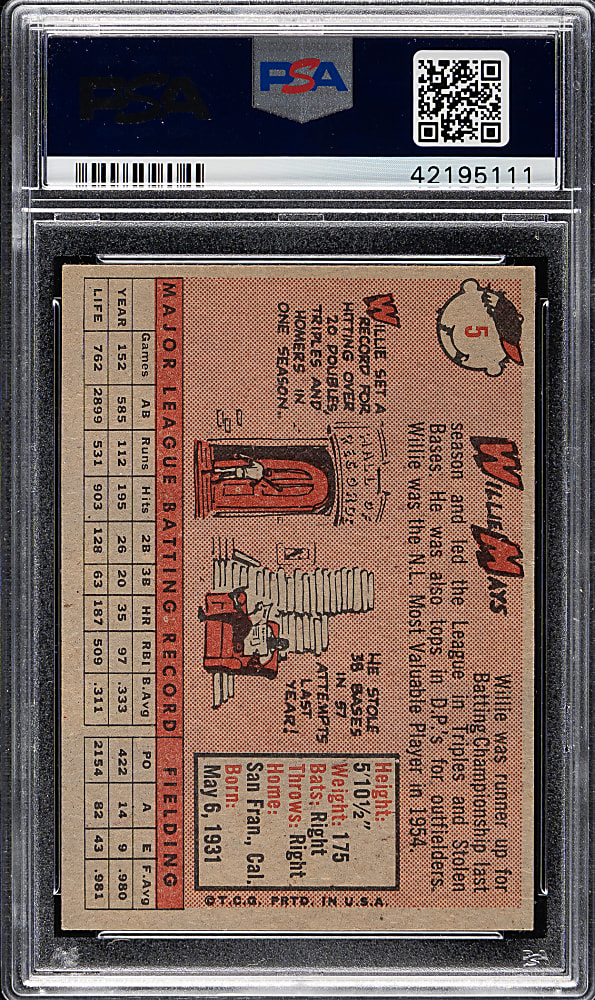 PSA
PSA
42195111
5
WILLIE MAYS
Willie was runner up for
Batting Championship last
season and led the League in Triples and Stolen
Bases. He was also tops in D.P.'s for outfielders.
Willie was the N.L. Most Valuable Player in 1954.
WILLIE SET A
RECORD FOR
HITTING OVER
20 DOUBLES,
TRIPLES AND
HOMERS IN
ONE SEASON..
HALL OF
RECORDS
N
HE STOLE
38 BASES
IN 57
ATTEMPTS
LAST
YEAR!
Height:
5'10½"
Weight: 175
Bats: Right
Throws: Right
Home:
San Fran., Cal.
Born:
May 6, 1931
MAJOR LEAGUE BATTING RECORD FIELDING
Games AB Runs Hits 2B 3B HR RBI B.Avg PO A E F.Avg
YEAR 152 585 112 195 26 20 35 97 .333 422 14 9 .980
LIFE 762 2899 531 903 128 63 187 509 .311 2154 82 43 .981
©T.C.G. PRTD. IN U.S.A.